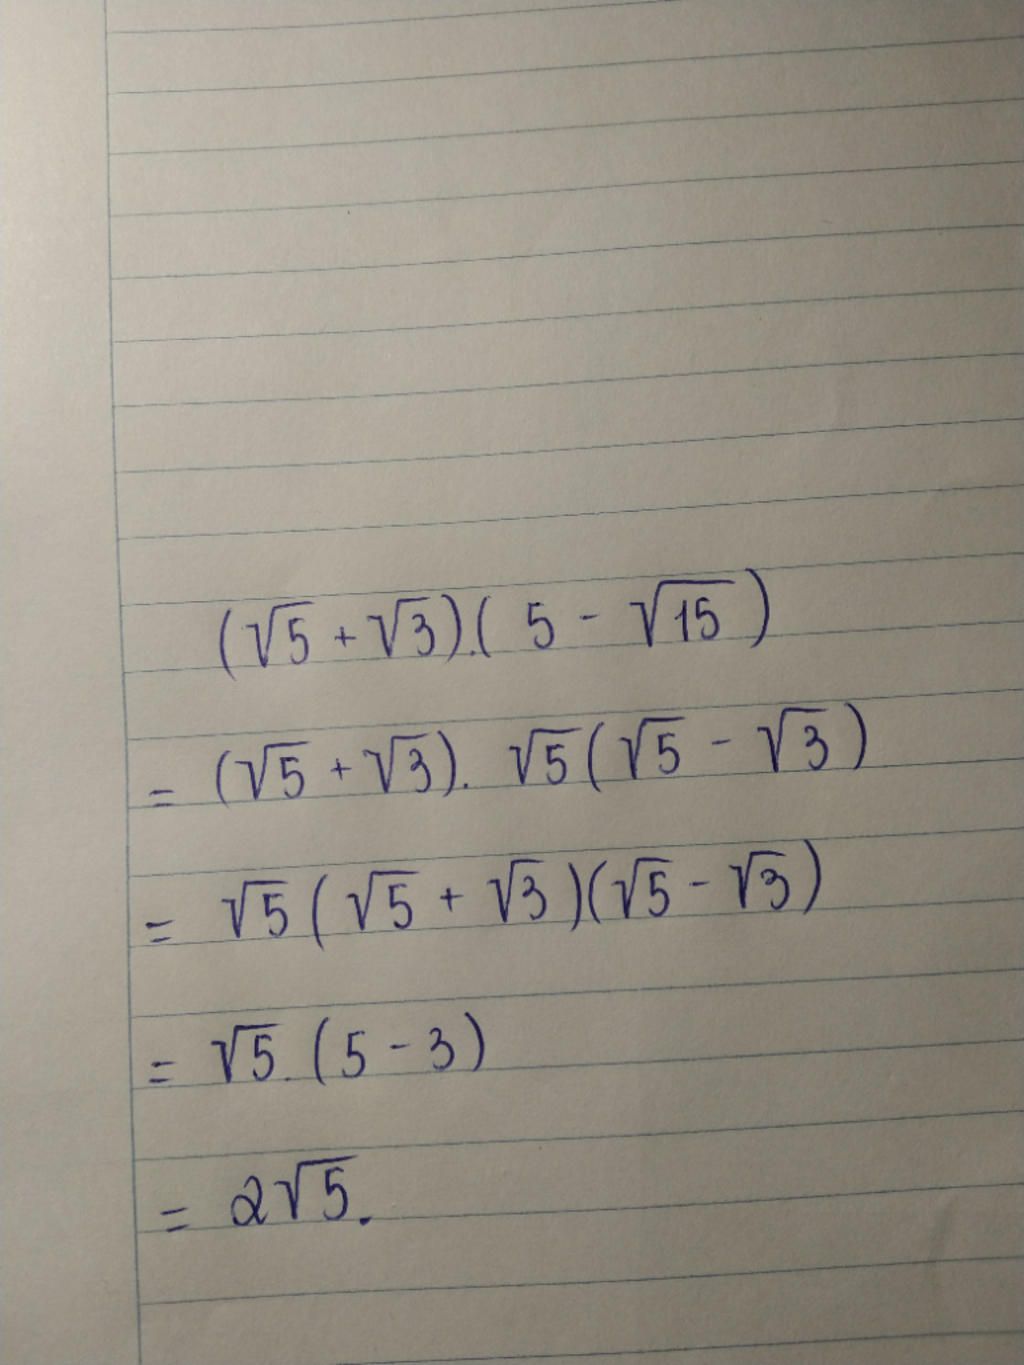 (√5 + √3).( 5 - √15 )
= (√5 + √3). √5(√5 - √3)
= √5 ( √5 + √3 )(√5 - √3)
= √5.(5 - 3)
= 2√5.